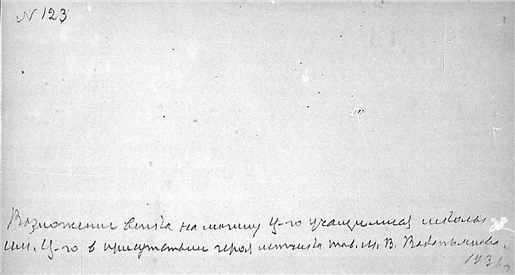 N 123
Возложение венка на могилу Ц-го учащимися школы
им. Ц-го в присутствии героя летчика тов. М. В. Водопьянова.
193 г.